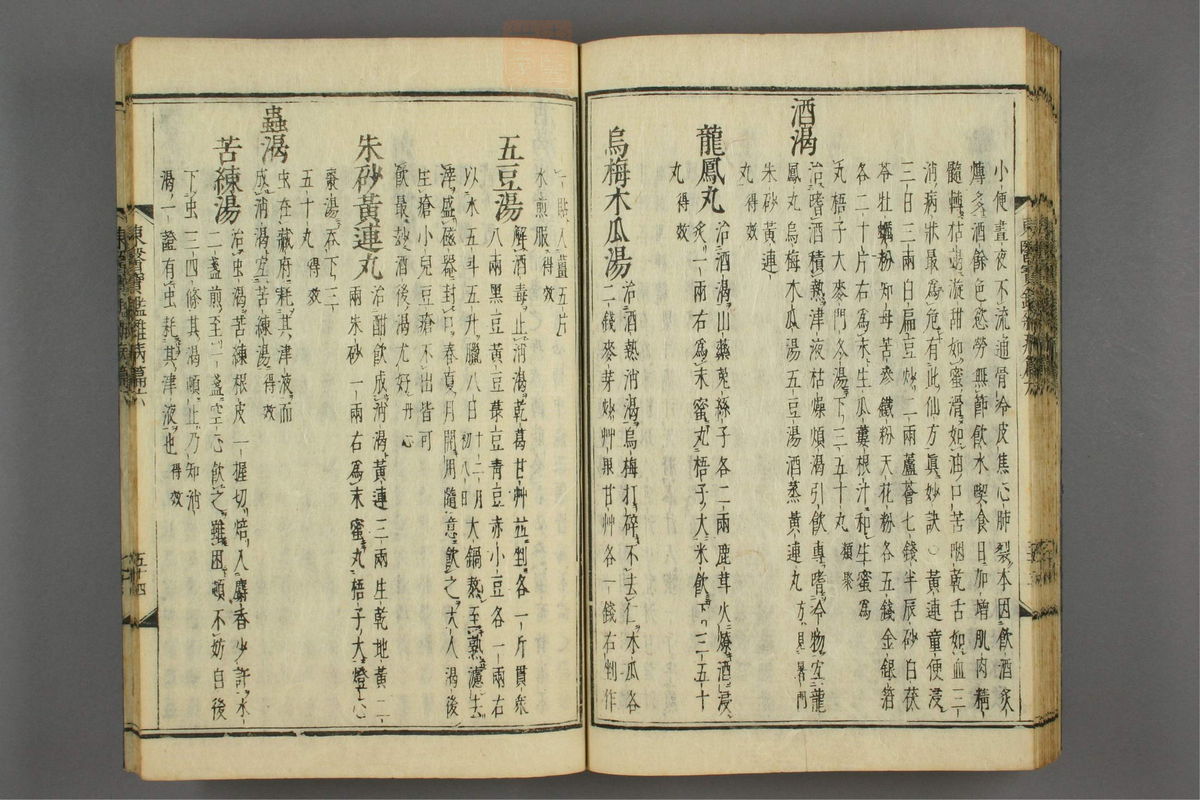 小便晝夜不流通骨冷皮焦心肺裂本因飲酒炙
煿多酒餘色慾勞無節飲水喫食日加增肌肉精
髓轉枯竭漩甜如蜜滑如油口苦咽乾舌如血三
消病狀最爲危有此仙方眞妙訣○黃連童便浸
三日三兩白扁豆炒二兩蘆薈七錢半辰砂白茯
苓牡蠣粉知母苦參鐵粉天花粉各五錢金銀箔
各二十片右爲末生瓜蔞根汁和生蜜爲
丸梧子大麥門冬湯下三五十丸類聚
酒渴
治嗜酒積熱津液枯燥煩渴引飲專嗜冷物宜龍
鳳丸烏梅木瓜湯五豆湯酒蒸黃連丸方見暑門
朱砂黃連
丸得效
龍鳳丸 治酒渴山藥兎絲子各二兩鹿茸火燎酒浸
炙一兩右爲末蜜丸梧子大米飮下三五十
丸得效
烏梅木瓜湯 治酒熱消渴烏梅打碎不去仁木瓜各
二錢麥芽炒艸果甘艸各一錢右剉作
一貼入薑五片
水煎服得效
五豆湯 解酒毒止消渴乾葛甘艸並剉各一斤貫衆
八兩黑豆黃豆菉豆靑豆赤小豆各一兩右
以水五斗五升臘八日十二月初八日大鍋熬至熟濾去
滓盛磁器封口春夏月開用隨意飮之大人渴後
生瘡小兒豆瘡不出皆可
飮最妙酒後渴尤好丹心
朱砂黃連丸 治酣飮成消渴黃連三兩生乾地黃二
兩朱砂一兩右爲末蜜丸梧子大燈心
棗湯呑下三
五十丸得效
蟲渴
虫在藏府耗其津液而
成消渴宜苦練湯得效
苦練湯 治虫渴苦練根皮一握切焙入麝香少許水
二盞煎至一盞空心飮之雖困頓不妨自後
下虫三四條其渴頓止乃知消
渴一證有虫耗其津液也得效
東醫寶鑑雜病篇六
五十四